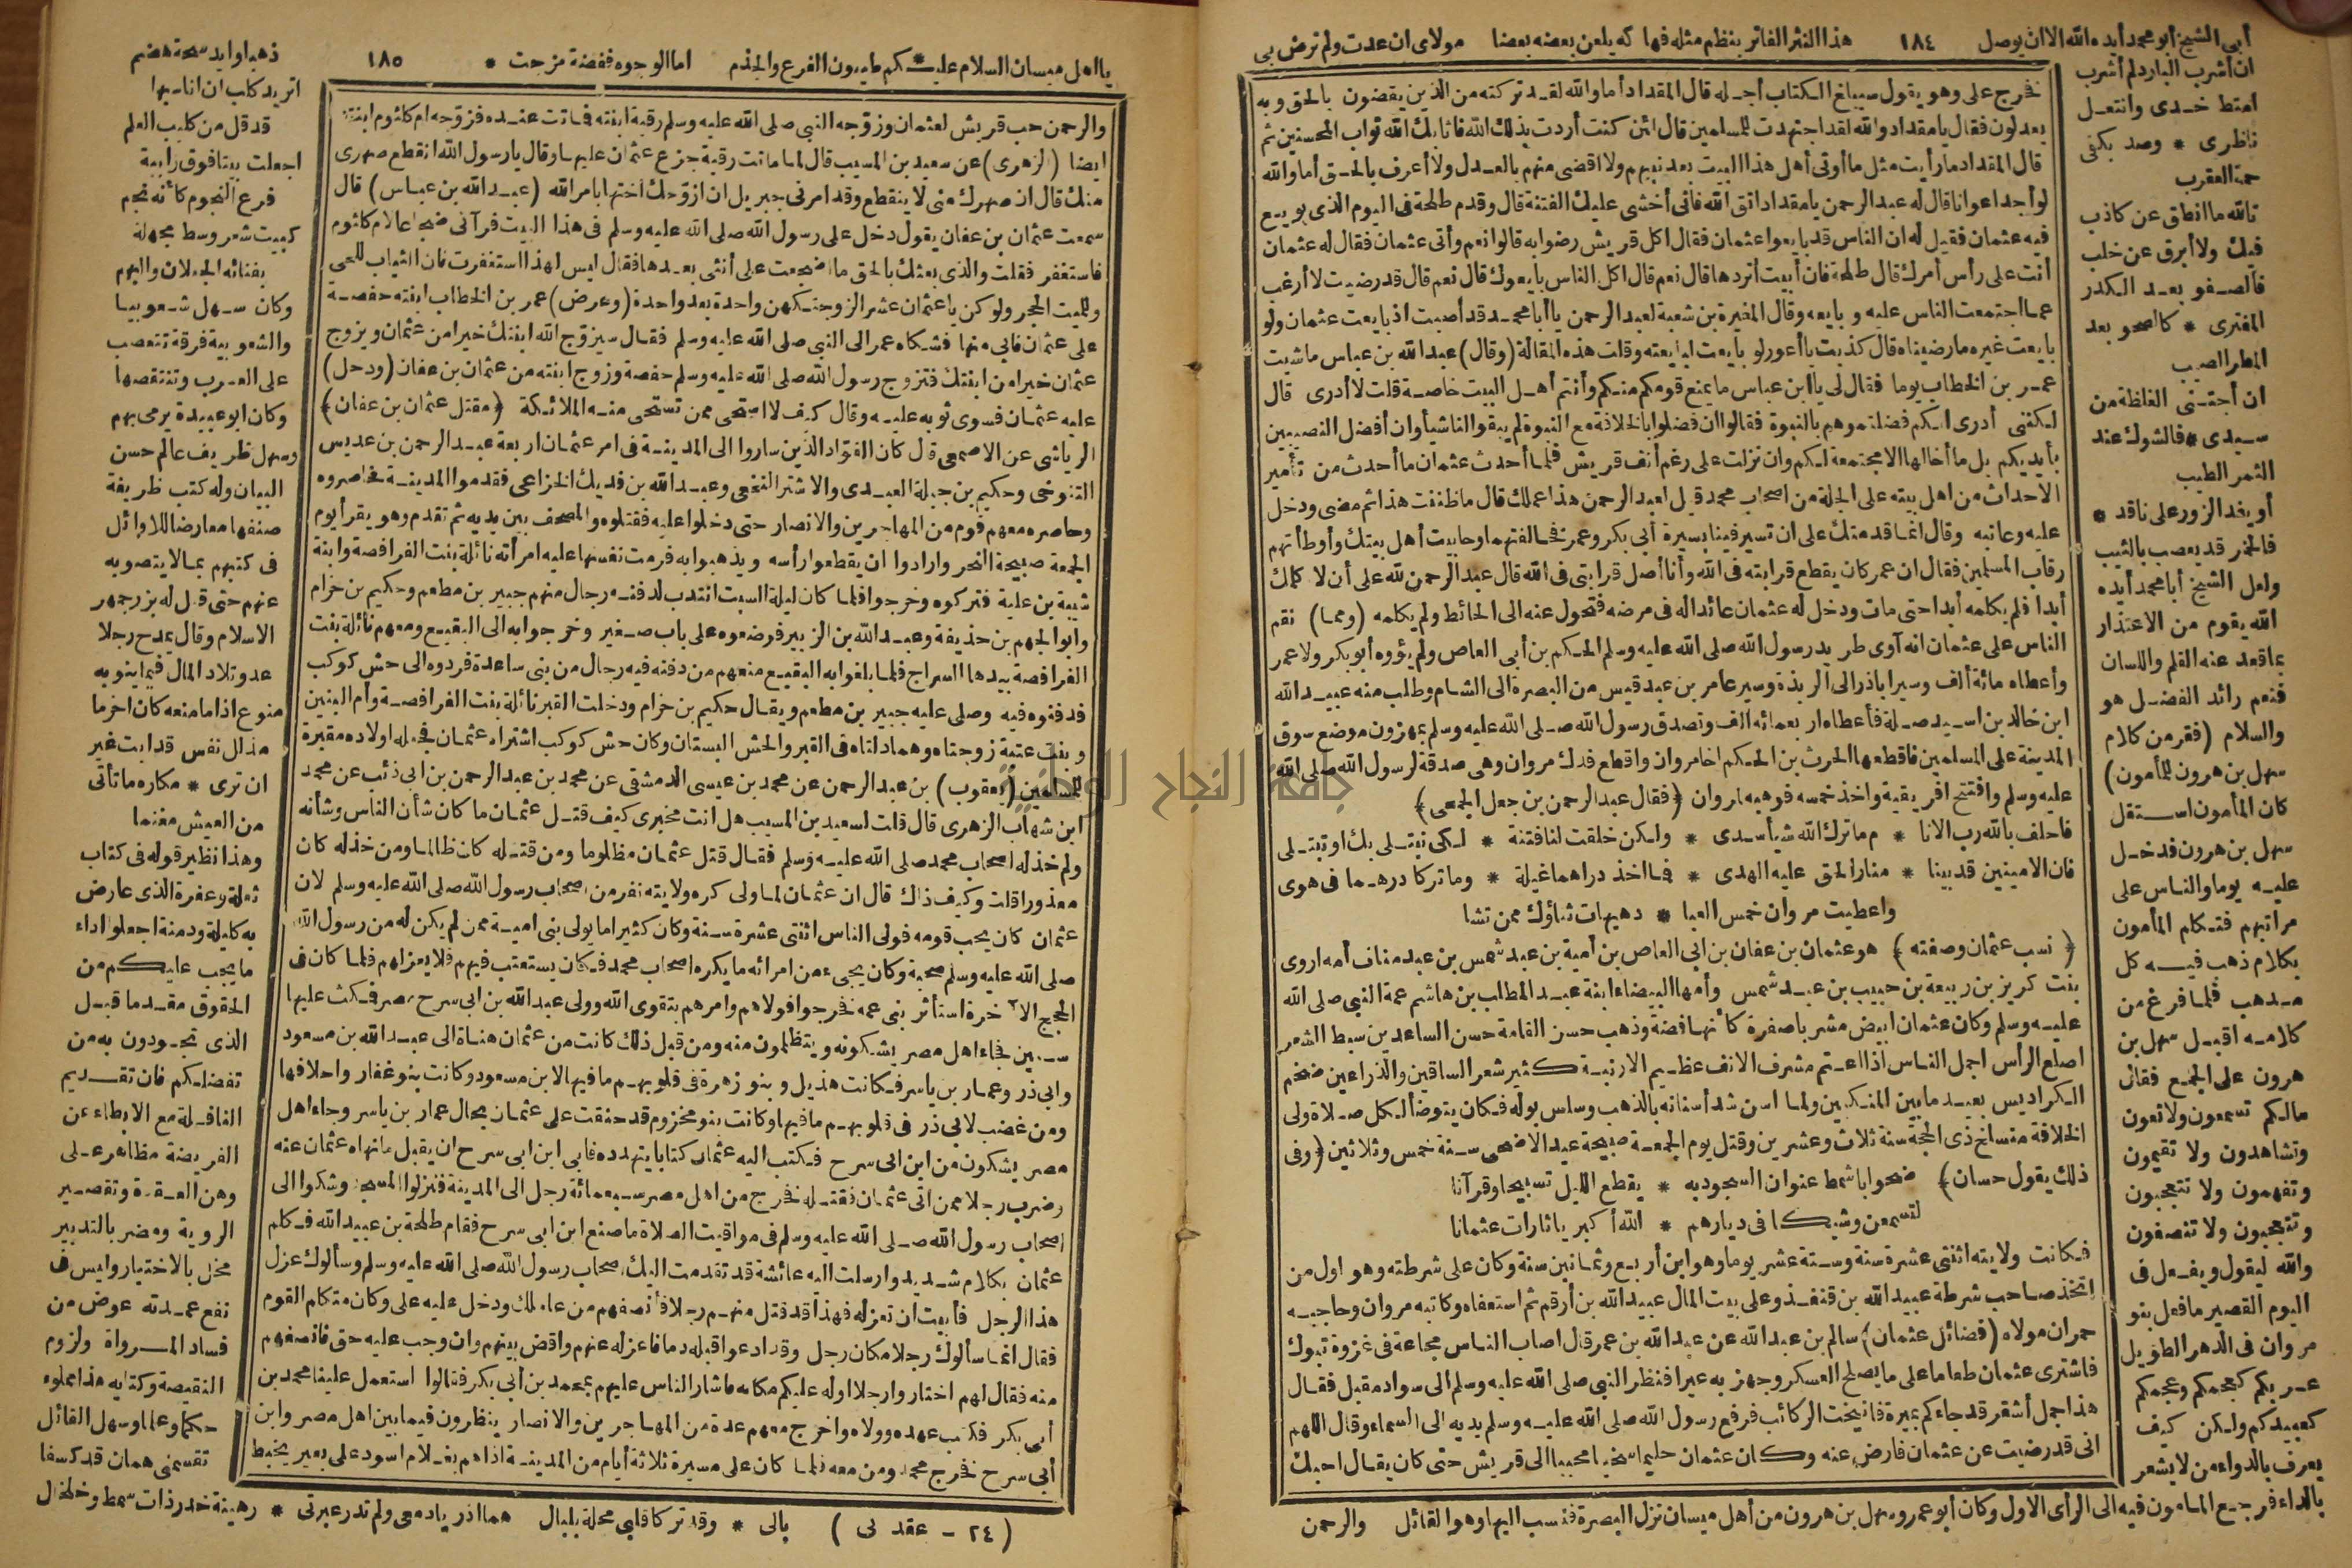 أبى الشيخ أبو محمد أيده الله الا ان يوصل ١٨٤ هذا النثر الفاتر بنظم مثله فها كه يلعن بعضه بعضا مولاى ان عدت ولم ترض بى
فخرج على وهو يقول سيبلغ الكتاب أجله قال المقداد أما والله لقد تركته من الذين يقضون بالحق وبه
يعدلون فقال يا مقداد والله لقد اجتهدت للمسلمين قال لئن كنت أردت بذلك الله فأثابك الله ثواب المحسنين ثم
قال المقداد ما رأيت مثل ما أوتى أهل هذا البيت بعد نبيهم ولا اقضى منهم بالعدل ولا أعرف بالحق أما والله
لو أجد اعوانا قال له عبد الرحمن يا مقداد اتق الله فانى أخشى عليك الفتنة قال وقدم طلحة فى اليوم الذى بويع
فيه عثمان فقيل له ان الناس قد بايعوا عثمان فقال اكل قريش رضوا به قالوا نعم وأتى عثمان فقال له عثمان
أنت على رأس أمرك قال طلحة فان أبيت أتردها قال نعم قال اكل الناس بايعوك قال نعم قال قد رضيت لا أرغب
عما اجتمعت الناس عليه وبايعه وقال المغيرة بن شعبة لعبد الرحمن يا أبا محمد قد أصبت اذ بايعت عثمان ولو
بايعت غيره ما رضيناه قال كذبت يا أعور لو بايعت غيره لبايعته وقلت هذه المقالة (وقال) عبد الله بن عباس ماشيت
عمر بن الخطاب يوما فقال لى يا ابن عباس ما يمنع قومكم منكم وأنتم أهل البيت خاصة قلت لا أدرى قال
لكننى أدرى انكم فضلتموهم بالنبوة فقالوا ان فضلوا بالخلافة مع النبوة لم يبقوا لنا شيأ وان أفضل النصيبين
بأيديكم بل ما أخالها الا مجتمعة لكم وان نزلت على رغم أنف قريش فلما أحدث عثمان ما أحدث من تأمير
الاحداث من اهل بيته على الجلة من اصحاب محمد قيل لعبد الرحمن هذا عملك قال ما ظننت هذا ثم مضى ودخل
عليه وعاتبه وقال انما قدمتك على ان تسير فينا بسيرة أبى بكر وعمر فخالفتهما وحابيت أهل بيتك وأوطأتهم
رقاب المسلمين فقال ان عمر كان يقطع قرابته فى الله وأنا أصل قرابتى فى الله قال عبد الرحمن لله على أن لا كلمك
أبدا فلم يكلمه أبدا حتى مات ودخل له عثمان عائدا له فى مرضه فتحول عنه الى الحائط ولم يكلمه (ومما) نقم
الناس على عثمان انه آوى طريد رسول الله صلى الله عليه وسلم الحكم بن أبى العاص ولم يؤوه أبو بكر ولا عمر
وأعطاه مائة ألف وسير ابا ذر الى الربذة وسير عامر بن عبد قيس من البصرة الى الشام وطلب منه عبيد الله
ابن خالد بن اسيد صلة فأعطاه اربعمائة الف وتصدق رسول الله صلى الله عليه وسلم بمهزون موضع سوق
المدينة على المسلمين فاقطعها الحرث بن الحكم اخا مروان واقطع فدك مروان وهى صدقة لرسول الله صلى الله
عليه وسلم وافتتح افريقية واخذ خمسه فوهبه لمروان (فقال عبد الرحمن بن جعل الجمعى)
فاحلف بالله رب الانا * م ما ترك الله شيأ سدى * ولكن خلقت لنا فتنة * لكى نبتلى بك او تبتلى
فان الامينين قد بينا * منار الحق عليه الهدى * فما اخذ درهما غيلة * وما تركا درهما فى هوى
واعطيت مروان خمس العبا * دهيهات شأوك ممن تشا
(نسب عثمان وصفته) هو عثمان بن عفان بن ابى العاص بن أمية بن عبد شمس بن عبد مناف أمه اروى
بنت كريز بن ربيعة بن حبيب بن عبد شمس وأمها البيضاء ابنة عبد المطلب بن هاشم عمة النبى صلى الله
عليه وسلم وكان عثمان ابيض مشربا صفرة كأنها فضة وذهب حسن القامة حسن الساعدين سبط الشعر
اصلع الرأس اجمل الناس اذا اعتم مشرف الانف عظيم الارنبة كثير شعر الساقين والذراعين ضخم
الكراديس بعيد ما بين المنكبين ولما اسن شد أسنانه بالذهب وسلس بوله فكان يتوضأ لكل صلاة ولى
الخلافة منسلخ ذى الحجة سنة ثلاث وعشرين وقتل يوم الجمعة صبيحة عيد الاضحى سنة خمس وثلاثين (وفى
ذلك يقول حسان) ضحوا باشمط عنوان السجود به * يقطع الليل تسبيحا وقرآنا
لتسمعن وشيكا فى ديارهم * الله أكبر يا ثارات عثمانا
فكانت ولايته اثنتى عشرة سنة وستة عشر يوما وهو ابن أربع وثمانين سنة وكان على شرطته وهو اول من
اتخذ صاحب شرطة عبيد الله بن قنفذ وعلى بيت المال عبيد الله بن أرقم ثم استعفاه وكاتبه مروان وحاجبه
حمران مولاه (فضائل عثمان) سالم بن عبد الله عن عبد الله بن عمر قال اصاب الناس مجاعة فى غزوة تبوك
فاشترى عثمان طعاما على ما يصلح العسكر وجهز به عيرا فنظر النبى صلى الله عليه وسلم الى سواد مقبل فقال
هذا جمل أشقر قد جاءكم بميرة فانيخت الركائب فرفع رسول الله صلى الله عليه وسلم يديه الى السماء وقال اللهم
انى قد رضيت عن عثمان فارض عنه وكان عثمان حليما سخيا محببا الى قريش حتى كان يقال احبك
ان أشرب البارد لم أشرب
امتط خدى وانتعل
ناظرى * وصد بكفى
حمة العقرب
تالله ما انطق عن كاذب
فيك ولا أبرق عن خلب
فالصفو بعد الكدر
المفترى * كالصحو بعد
المطر الصيب
ان أجتنى الغلظة من
سيدى * فالشوك عند
الثمر الطيب
أو يغد الزور على ناقد *
فالخمر قد يعصب بالثيب
ولعل الشيخ أبا محمد أيده
الله يقوم من الاعتذار
بما قعد عنه القلم واللسان
فنعم رائد الفضل هو
والسلام (فقر من كلام
سهل بن هرون للمأمون)
كان المأمون استقل
سهل بن هرون فدخل
عليه يوما والناس على
مراتبهم فتكلم المأمون
بكلام ذهب فيه كل
مذهب فلما فرغ من
كلامه اقبل سهل بن
هرون على الجميع فقال
مالكم تسمعون ولا تعون
وتشاهدون ولا تقيمون
وتفهمون ولا تتعجبون
وتتعجبون ولا تنصفون
والله ليقول ويفعل فى
اليوم القصير ما فعل بنو
مروان فى الدهر الطويل
عربكم كعجمكم وعجمكم
كعبيدكم ولكن كيف
يعرف بالدواء من لا يشعر
بالداء فرجع المامون فيه الى الرأى الاول وكان أبو عمرو سهل بن هرون من أهل ميسان نزل البصرة فنسب اليها وهو القائل والرحمن
يا اهل ميسان السلام عليكم طيبون الفرع والجذم اما الوجوه ففضة مزجت * ١٨٥ ذهبا وايد سحة هضم
والرحمن حب قريش لعثمان وزوجه النبى صلى الله عليه وسلم رقية ابنته فماتت عنده فزوجه ام كلثوم ابنته
ايضا (الزهرى) عن سعيد بن المسيب قال لما ماتت رقية جزع عثمان عليها وقال يا رسول الله انقطع صهرى
منك قال ان صهرك منى لا ينقطع وقد امرنى جبريل ان ازوجك اختها بامر الله (عبد الله بن عباس) قال
سمعت عثمان بن عفان يقول دخل على رسول الله صلى الله عليه وسلم فى هذا البيت فرآنى ضجيعا لام كلثوم
فاستغفر فقلت والذى بعثك بالحق ما اضجعت على أنثى بعدها فقال ليس لهذا استغفرت فان الثياب للحى
وللميت الحجر ولو كن يا عثمان عشرا لزوجتكهن واحدة بعد واحدة (وعرض) عمر بن الخطاب ابنته حفصة
على عثمان فابى منها فشكاه عمر الى النبى صلى الله عليه وسلم فقال سيزوج الله ابنتك خيرا من عثمان ويزوج
عثمان خيرا من ابنتك فتزوج رسول الله صلى الله عليه وسلم حفصة وزوج ابنته من عثمان بن عفان (ودخل)
عليه عثمان فسوى ثوبه عليه وقال كيف لا استحى ممن تستحى منه الملائكة (مقتل عثمان بن عفان)
الرياشى عن الاصمعى قال كان القواد الذين ساروا الى المدينة فى امر عثمان اربعة عبد الرحمن بن عديس
التنوخى وحكيم بن جبلة العبدى والاشتر النخعى وعبد الله بن فديك الخزاعى فقدموا المدينة فحاصروه
وحاصره معهم قوم من المهاجرين والانصار حتى دخلوا عليه فقتلوه والمصحف بين يديه ثم تقدم وهو يقرأ يوم
الجمعة صبيحة النحر وارادوا ان يقطعوا رأسه ويذهبوا به فرمت نفسها عليه امرأته نائلة بنت الفرافصة وابنة
شيبة بن علية فتركوه وخرجوا فلما كان ليلة السبت انتدب لدفنه رجال منهم جبير بن مطعم وحكيم بن خزام
وابو الجهم بن حذيفة وعبد الله بن الزبير فوضعوه على باب صغير وخرجوا به الى البقيع ومعهم نائلة بنت
الفرافصة بيدها السراج فلما بلغوا به البقيع منعهم من دفنه فيه رجال من بنى ساعدة فردوه الى حش كوكب
فدفنوه فيه وصلى عليه جبير بن مطعم ويقال حكيم بن خزام ودخلت القبر نائلة بنت الفرافصة وأم البنين
وبنت عتبة زوجتاه وهما دلتاه فى القبر والحش البستان وكان حش كوكب اشتراه عثمان فجعله اولاده مقبرة
للمسلمين (يعقوب) بن عبد الرحمن عن محمد بن عيسى الدمشقى عن محمد بن عبد الرحمن بن ابى ذئب عن محمد
ابن شهاب الزهرى قال قلت لسعيد بن المسيب هل انت مخبرى كيف قتل عثمان ما كان شأن الناس وشأنه
ولم خذله اصحاب محمد صلى الله عليه وسلم فقال قتل عثمان مظلوما ومن قتله كان ظالما ومن خذله كان
معذورا قلت وكيف ذاك قال ان عثمان لما ولى كره ولايته نفر من اصحاب رسول الله صلى الله عليه وسلم لان
عثمان كان يحب قومه فولى الناس اثنتى عشرة سنة وكان كثيرا ما يولى بنى امية ممن لم يكن له من رسول الله
صلى الله عليه وسلم صحبة وكان يجىء من امرائه ما يكره اصحاب محمد فكان يستعتب فيهم فلا يعزلهم فلما كان فى
الحجج الآخرة استأثر بنى عمه فخرجوا فولاهم وامرهم بتقوى الله وولى عبد الله بن ابى سرح مصر فمكث عليها
سنين فجاء اهل مصر يشكونه ويتظلمون منه ومن قبل ذلك كانت من عثمان هناة الى عبد الله بن مسعود
وابى ذر وعمار بن ياسر فكانت هذيل وبنو زهرة فى قلوبهم ما فيها لابن مسعود وكانت بنو غفار واحلافها
ومن غضب لابى ذر فى قلوبهم ما فيها وكانت بنو مخزوم قد حنقت على عثمان بحال عمار بن ياسر وجاء اهل
مصر يشكون من ابن ابى سرح فكتب اليه عثمان كتابا يتهدده فابى ابن ابى سرح ان يقبل ما نهاه عثمان عنه
وضرب رجلا ممن اتى عثمان فقتله فخرج من اهل مصر سبعمائة رجل الى المدينة فنزلوا المسجد وشكوا الى
اصحاب رسول الله صلى الله عليه وسلم فى مواقيت الصلاة ما صنع ابن ابى سرح فقام طلحة بن عبيد الله فكلم
عثمان بكلام شديد وارسلت اليه عائشة قد تقدمت اليك اصحاب رسول الله صلى الله عليه وسلم وسألوك عزل
هذا الرجل فأبيت ان تعزله فهذا قد قتل منهم رجلا فأنصفهم من عاملك ودخل عليه على وكان متكلم القوم
فقال انما سألوك رجلا مكان رجل وقد ادعوا قبله دما فاعزله عنهم واقض بينهم وان وجب عليه حق فانصفهم
منه فقال لهم اختاروا رجلا اوله عليكم مكانه فاشار الناس عليهم بمحمد بن أبى بكر فقالوا استعمل علينا محمد بن
أبى بكر فكتب عهده وولاه واخرج معهم عدة من المهاجرين والانصار ينظرون فيما بين اهل مصر وابن
أبى سرح فخرج محمد ومن معه فلما كان على مسيرة ثلاثة أيام من المدينة اذا هم بغلام اسود على بعير يخبط
اتريد كلب ان اناسبها
قد قل من كليب العلم
اجعلت بيتا فوق رابية
فرع النجوم كأنه نجم
كبيت شعر وسط مجهلة
بفنائه الجعلان والبهم
وكان سهل شعوبيا
والشعوبية فرقة تتعصب
على العرب وتنتقصها
وكان ابو عبيدة يرمى بهم
وسهل ظريف عالم حسن
البيان وله كتب ظريفة
صنفها معارضا للاوائل
فى كتبهم بما لا يتصوبه
عنهم حتى قيل له بزرجمهر
الاسلام وقال يمدح رجلا
عدو تلاد المال فيما ينوبه
منوع اذا ما منعه كان اخرما
مذلل نفس قد ابت غير
ان ترى * مكاره ما تأتى
من العيش مغنما
وهذا نظير قوله فى كتاب
ثعلة وعفرة الذى عارض
به كليلة ودمنة اجعلوا اداء
ما يجب عليكم من
الحقوق مقدما قبل
الذى تجودون به من
تفضلكم فان تقديم
النافلة مع الابطاء عن
الفريضة مظاهر على
وهن العقدة وتقصير
الروية ومضر بالتدبير
مخل بالاختيار وليس فى
نفع عمدته عوض من
فساد المرواة ولزوم
النقيصة وكتابه هذا مملوء
حكما وعلما وسهل القائل
تقسمنى همان قد كسفا
(٢٤ - عقد نى) بالى * وقد تركا قلبى محلة بلبال هما اذريا دمعى ولم تدر عبرتى * رهينة خدر ذات سمط وخلخال
جامعة النجاح الوطنية